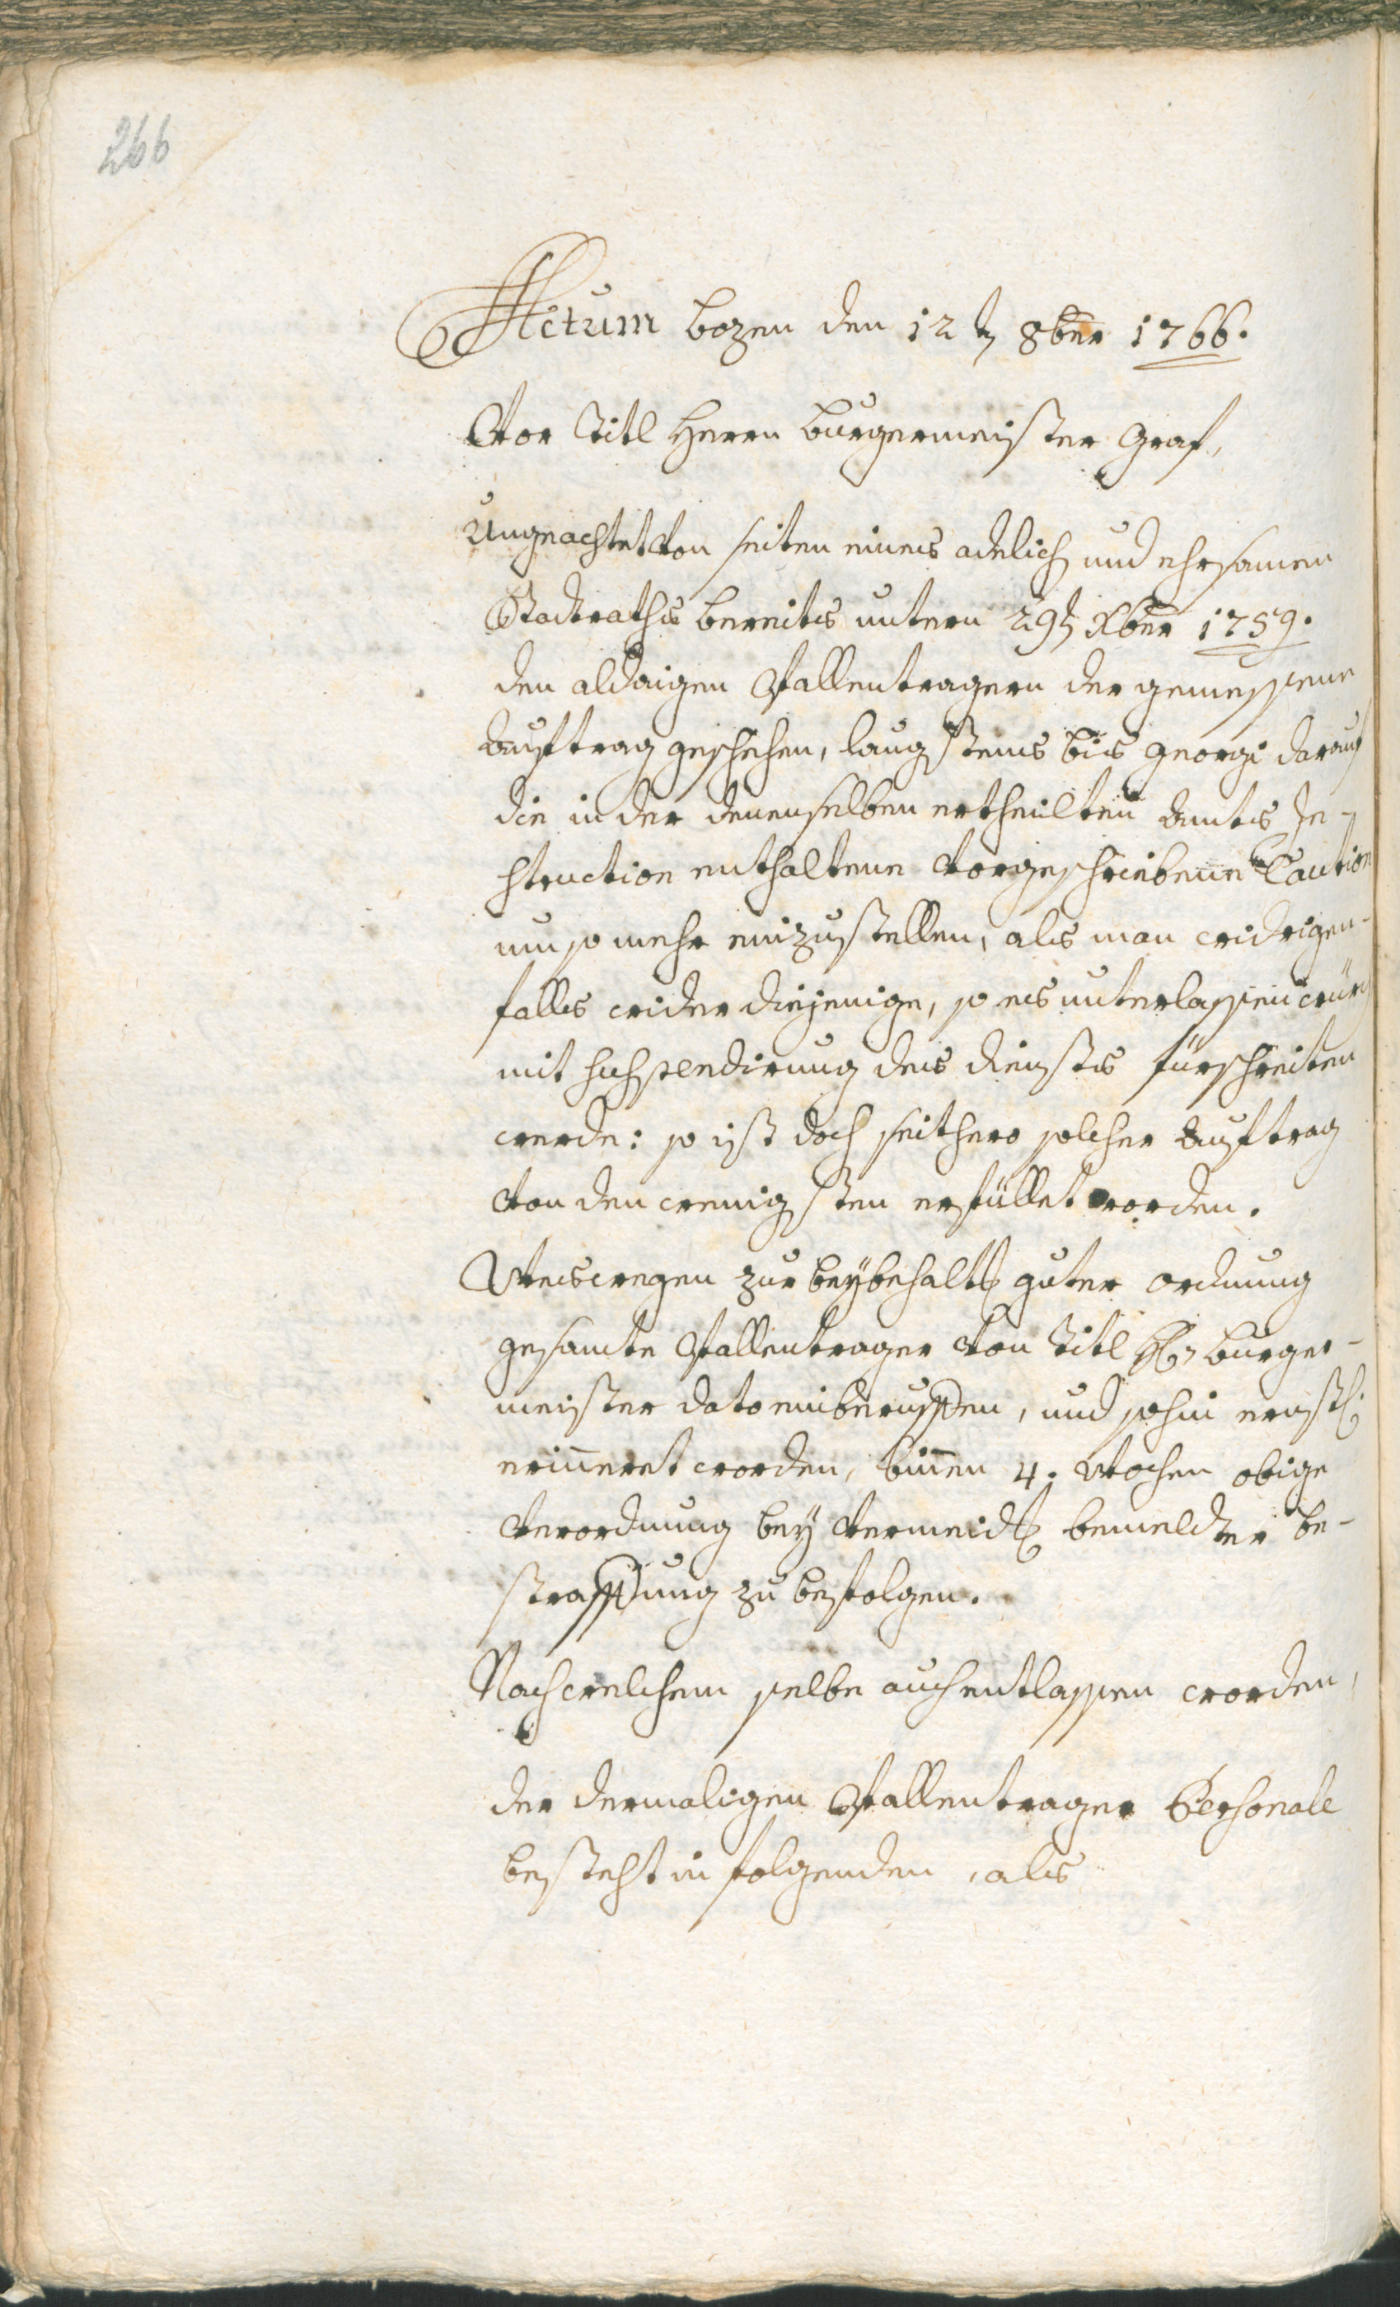 266
Actum bozen den 12t 8ber 1766.
Vor Titl Herrn burgermeister Graf,
Ungeachtet von seiten eines adelich und ehrsamen
Stadtraths bereits untern 29t Xber 1759.
den aldaigen Ballentragern der gemessene
auftrag geschehen, langstens bis georgi darauf
die in der denenselben ertheilten amts In-
struction enthaltene vorgeschriebene Caution
um so mehr einzustellen, als man widrigen-
falls wider diejenige, so es unterlassen wurd
mit suspendirung des diensts fürschreiten
werde: so ist doch seithero solcher auftrag
von den wenigsten erfüllet worden.
Weswegen zur beybehaltg guter ordnung
gesamte Ballentrager von Titl Hr burger-
meister dato einberuffen, und sohin ernstl:
erinneret worden, binnen 4. Wochen obige
verordnung bey vermeidg bemeldter be-
straffung zu befolgen.
Nachwelchem selbe auch entlassen worden,
der dermaligen Ballentrager Personale
besteht in folgenden, als